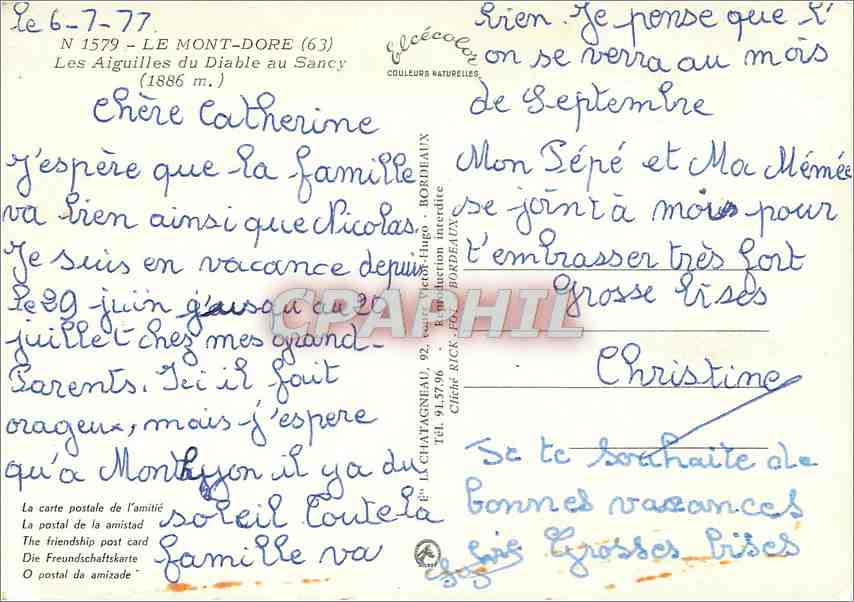 le 6-7-77.
N 1579 - LE MONT-DORE (63)
Les Aiguilles du Diable au Sancy
(1886 m.)
Elcécolor
COULEURS NATURELLES
Chère Catherine
J'espère que la famille
va bien ainsi que Nicolas.
Je suis en vacance depuis
le 29 juin jusqu au 20
juillet chez mes grand-
Parents. Ici il fait
orageux, mais j'espere
qu'a il ya du
soleil Toute la
famille va
bien. Je pense que l'
on se verra au mois
de Septembre
Mon Pépé et Ma Mémée
se joint à mois pour
t'embrasser très fort
Grosse bises
Christine
Je te souhaite de
bonnes vacances
Grosses bises
La carte postale de l'amitié
La postal de la amistad
The friendship post card
Die Freundschaftskarte
O postal da amizade
Ets LA CHATAGNEAU, 92, cours Victor-Hugo - BORDEAUX
Tél. 91.57.96 - Reproduction interdite
Cliché RICK-FOT, BORDEAUX
CPAPHIL